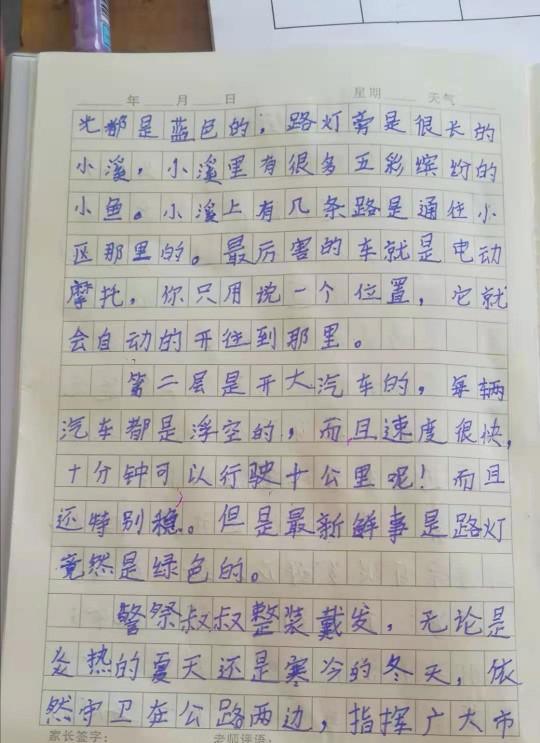 年 月 日 星期 天气
光都是蓝色的，路灯旁是很长的
小溪，小溪里有很多五彩缤纷的
小鱼。小溪上有几条路是通往小
区那里的。最厉害的车就是电动
摩托，你只用说一个位置，它就
会自动的开往到那里。
第二层是开大汽车的，每辆
汽车都是浮空的，而且速度很快，
十分钟可以行驶十公里呢！而且
还特别稳。但是最新鲜事是路灯
竟然是绿色的。
警祭叔叔整装戴发，无论是
炎热的夏天还是寒冷的冬天，依
然守卫在公路两边，指挥广大市
家长签字： 老师评语：